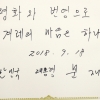 평화와 번영으로
겨레의 마음은 하나
2018. 9. 19
대통령 문 재